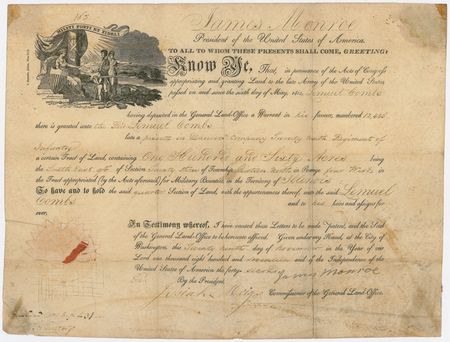 James Monroe
President of the United States of America,
TO ALL TO WHOM THESE PRESENTS SHALL COME, GREETING:
Know Ye, That, in pursuance of the Acts of Congress
appropriating and granting Land to the late Army of the United States
passed on and since the sixth day of May, 1812, Lemuel Combs
having deposited in the General Land-Office a Warrant in his favor, numbered
there is granted unto the said Lemuel Combs
late a private in Company Twenty Regiment of
Infantry
a certain Tract of Land, containing One Hundred and Sixty Acres being
the South East of Section Twenty three of Township North in Range four West
in the Tract appropriated (by the Acts aforesaid) for Military Bounties, in the Territory of Illinois
To have and to hold the said quarter Section of Land, with the appurtenances thereof, unto the said Lemuel
Combs and to his heirs and assigns for
ever.
In Testimony whereof, I have caused these Letters to be made Patent, and the Seal
of the General Land-Office to be hereunto affixed. Given under my Hand, at the City of
Washington, this Twenty day of November in the Year of our
Lord one thousand eight hundred and and of the Independence of the
United States of America the forty second
By the President, James Monroe
Josiah Meigs Commissioner of the General Land-Office.